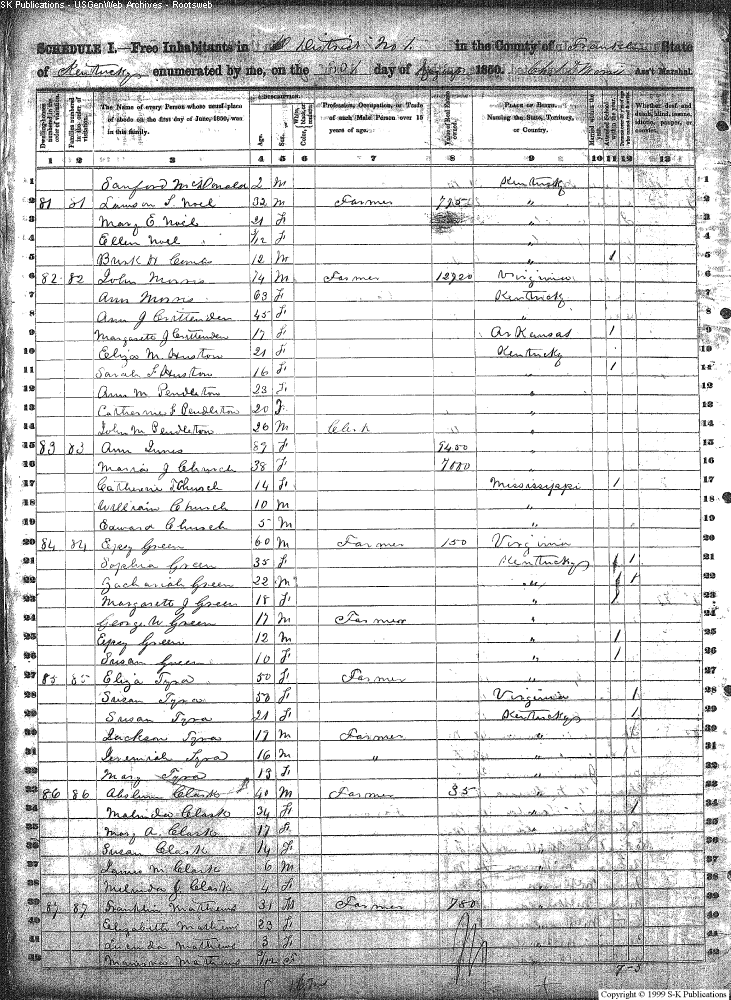 SK Publications - USGenWeb Archives - Rootsweb
SCHEDULE I.—Free Inhabitants in District No 1. in the County of Franklin State
of Kentucky enumerated by me, on the day of 1850. Ass't Marshal.
DESCRIPTION.
Dwelling-houses numbered in the order of visitation.
Families numbered in the order of visitation.
The Name of every Person whose usual place of abode on the first day of June, 1850, was in this family.
Age.
Sex.
Color, White, black, or mulatto.
Profession, Occupation, or Trade of each Male Person over 15 years of age.
Value of Real Estate owned.
PLACE OF BIRTH. Naming the State, Territory, or Country.
Married within the year.
Attended School within the year.
Whether deaf and dumb, blind, insane, idiotic, pauper, or convict.
1 2 3 4 5 6 7 8 9 10 11 12 13
1 Sanford McDonald 2 m Kentucky 1
2 81 81 Lawson F. Noel 32 m Farmer " 2
3 Mary E Noel 21 f " 3
4 Ellen Noel /12 f " 4
5 12 m " 1 5
6 82 82 John Morris 74 m Farmer 12920 Virginia 6
7 Ann Morris 63 f Kentucky 7
8 Ann J Crittenden 45 f " 8
9 Margarett J Crittenden 17 f Arkansas 1 9
10 Eliza M. Huston 21 f Kentucky 10
11 Sarah F Huston 16 f " 1 11
12 Ann M Pendleton 23 f " 12
13 Catherine F Pendleton 20 f " 13
14 John M Pendleton 26 m Clerk " 14
15 83 83 Ann Innes 89 f 9400 " 15
16 Maria J Church 38 f 7000 " 16
17 Catherine Church 14 f Mississippi 1 17
18 William Church 10 m " 18
19 Edward Church 5 m " 19
20 84 84 Epey Green 60 m Farmer 150 Virginia 20
21 Sophia Green 35 f Kentucky 1 1 21
22 Zachariah Green 22 m " 1 1 22
23 Margarett J Green 18 f " 1 23
24 George W Green 17 m Farmer " 24
25 Epey Green 12 m " 1 25
26 Susan Green 10 f " 1 26
27 85 85 Eliza Tyra 50 f Farmer " 27
28 Susan Tyra 50 f Virginia 1 28
29 Susan Tyra 21 f Kentucky 1 29
30 Jackson Tyra 17 m Farmer " 30
31 Jeremiah Tyra 16 m " " 31
32 Mary Tyra 13 f " 32
33 86 86 Absolum Clark 40 m Farmer 35 " 33
34 Malinda Clark 34 f " 1 34
35 Mary A. Clark 17 f " 35
36 Susan Clark 14 f " 36
37 James M Clark 6 m " 37
38 Melinda J Clark 4 f " 38
39 87 87 Franklin Mathews 31 m Farmer 780 " 39
40 Elizabeth Mathews 23 f " 40
41 Mathews 3 f " 41
42 Mathews /12 f " 42
Copyright © 1999 S-K Publications